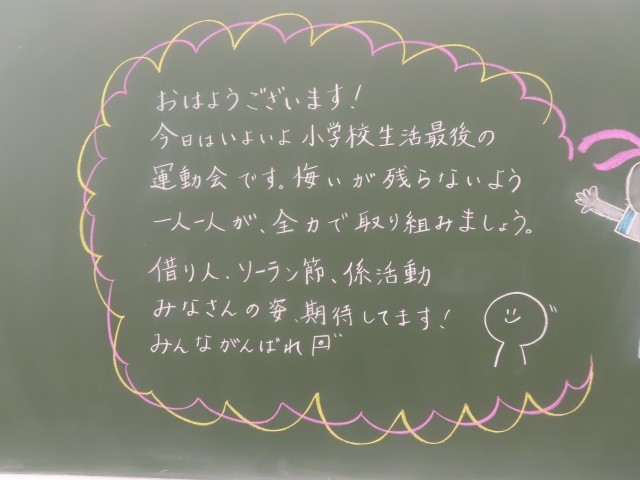 おはようございます!
今日はいよいよ小学校生活最後の
運動会です。悔いが残らないよう
一人一人が、全力で取り組みましょう。
借り人、ソーラン節、係活動
みなさんの姿、期待してます!
みんながんばれ